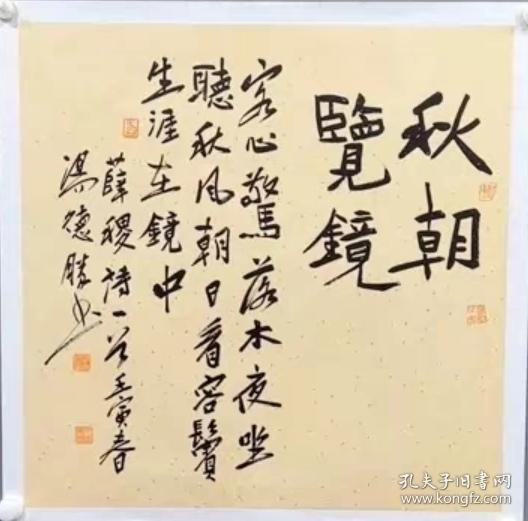 秋朝
覽鏡
客心驚落木夜坐
聽秋風朝日看容鬢
生涯在鏡中
薛稷詩一首壬寅春
湯德勝书
孔夫子旧书网
www.kongfz.com